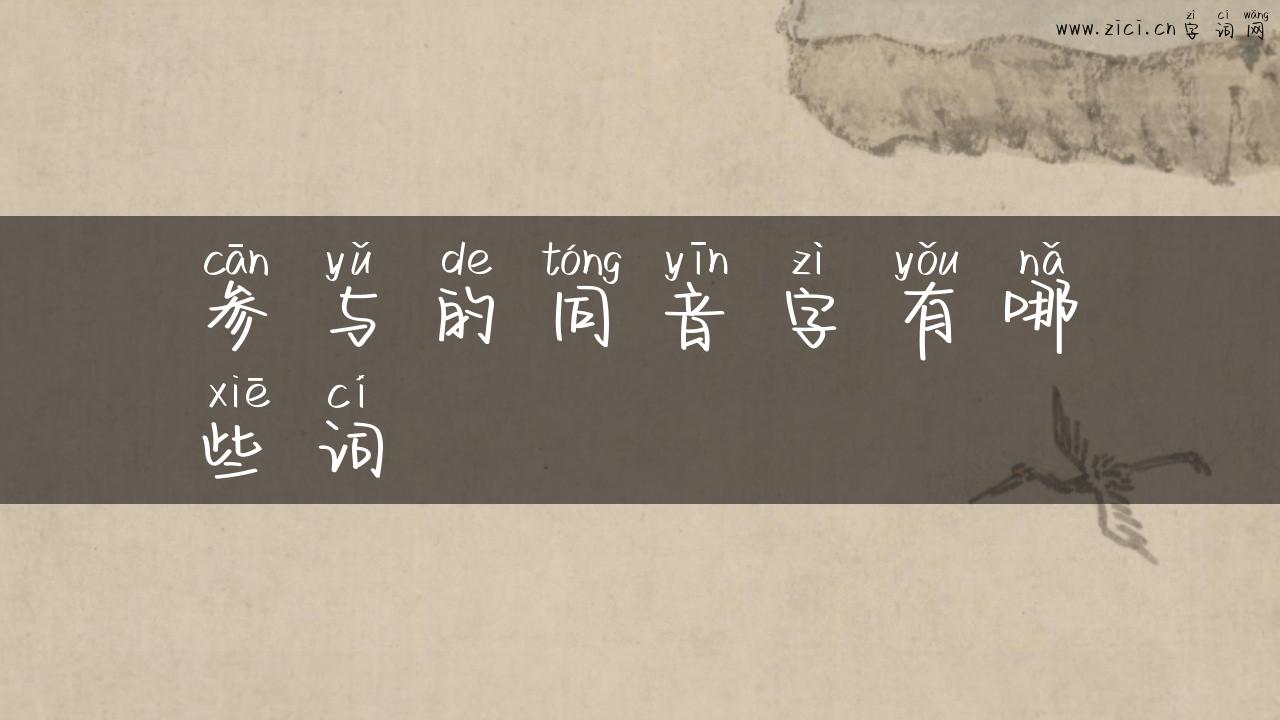 zì cí wǎng
www.zici.cn 字词网
cān yǔ de tóng yīn zì yǒu nǎ
参与的同音字有哪
xiē cí
些词